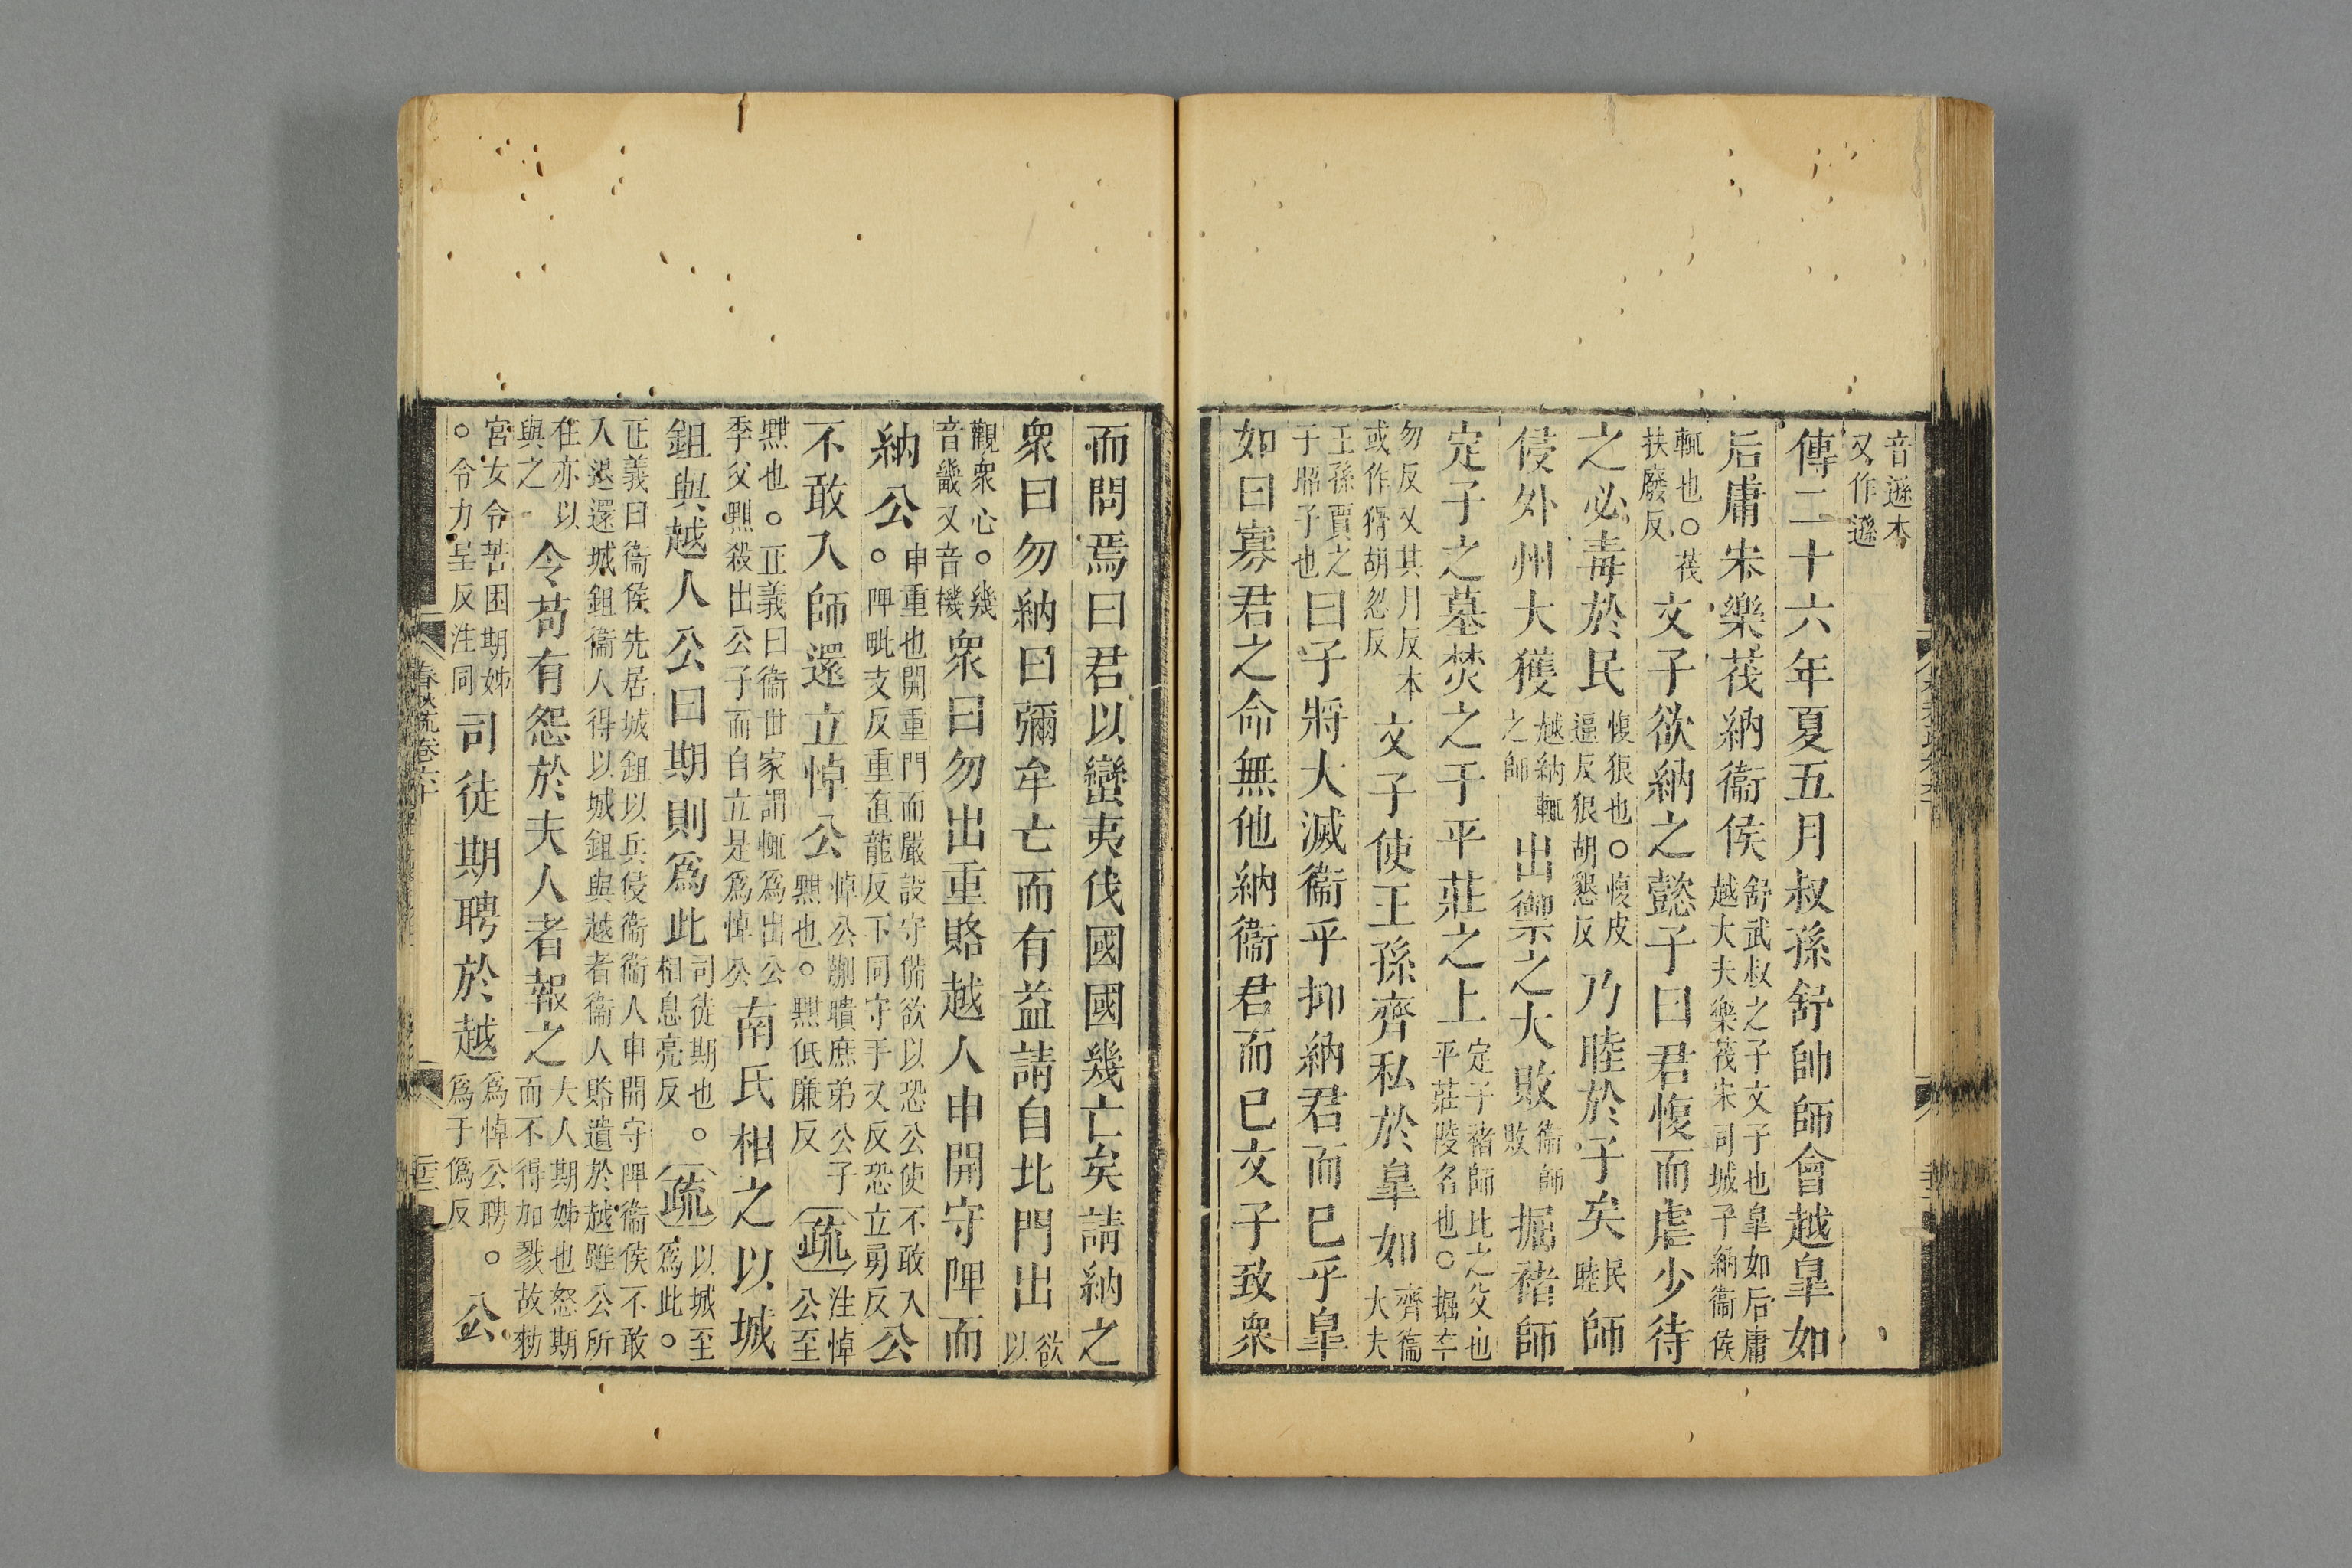 音遜本又作遜
傳二十六年夏五月叔孫舒帥師會越皐如
后庸宋樂茷納衞侯舒武叔之子文子也皐如后庸越大夫樂茷宋司城子納衞侯
輒也○茷扶廢反文子欲納之懿子曰君愎而虐少待
之必毒於民愎狠也○愎皮逼反狠胡懇反乃睦於子矣民睦師
侵外州大獲越納輒之師出禦之大敗衞師敗掘褚師
定子之墓焚之于平莊之上定子褚師比之父也平莊陵名也○掘本
勿反又其月反本或作搰胡忽反文子使王孫齊私於皐如齊衞大夫
王孫賈之子昭子也曰子將大滅衞乎抑納君而已乎皐
如曰寡君之命無他納衞君而已文子致衆
而問焉曰君以蠻夷伐國國幾亡矣請納之
衆曰勿納曰彌牟亡而有益請自北門出欲以
觀衆心○幾音畿又音機衆曰勿出重賂越人申開守陴而
納公申重也開重門而嚴設守備欲以恐公使不敢入○陴毗支反重直龍反下同守手又反恐立勇反公
不敢入師還立悼公悼公蒯聵庶弟公子黚也○黚低廉反疏注悼公至
黚也○正義曰衞世家謂輒爲出公季父黚殺出公子而自立是爲悼公南氏相之以城
鉏與越人公曰期則爲此司徒期也○相息亮反疏以城至爲此○
正義曰衞侯先居城鉏以兵侵衞衞人申開守陴衞侯不敢入退還城鉏衞人得以城鉏與越者衞人賂遺於越雖公所
在亦以與之令苟有怨於夫人者報之夫人期姊也怒期而不得加戮故勑
宮女令苦困期姊○令力呈反注同司徒期聘於越爲悼公聘○爲于僞反公
春秋疏卷六十